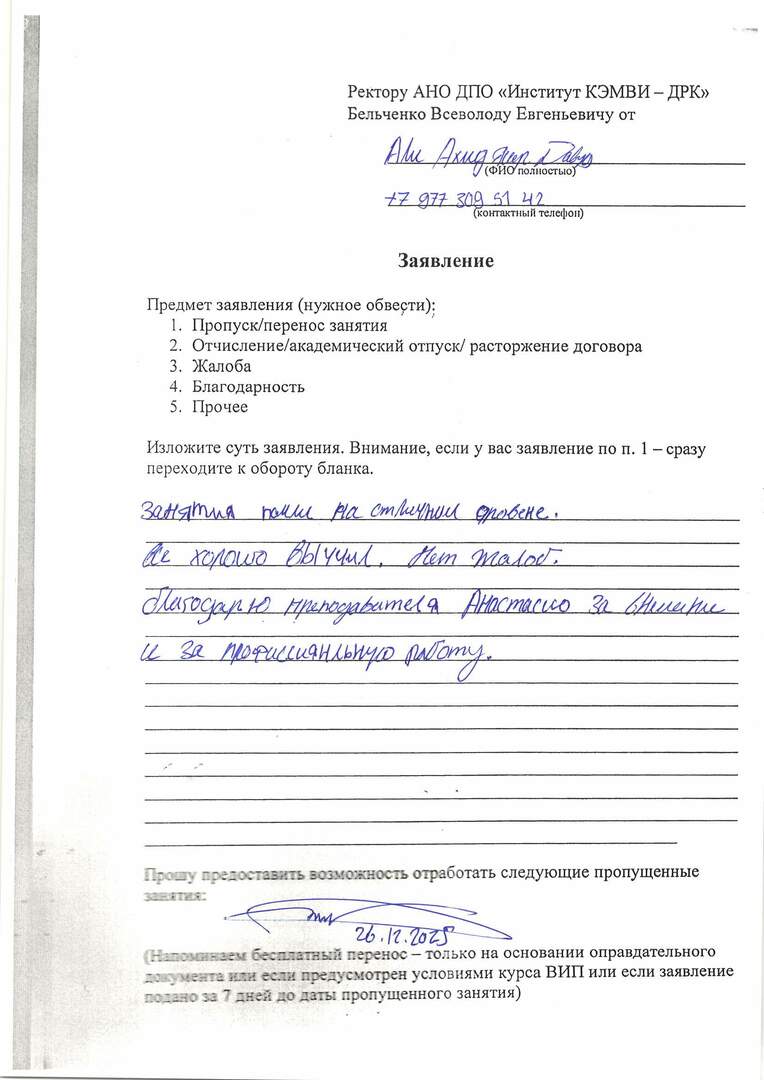 Ректору АНО ДПО «Институт КЭМВИ – ДРК»
Бельченко Всеволоду Евгеньевичу от
Али Ахмад
(ФИО полностью)
+7 977 309 51 42
(контактный телефон)
Заявление
Предмет заявления (нужное обвести):
1. Пропуск/перенос занятия
2. Отчисление/академический отпуск/ расторжение договора
3. Жалоба
4. Благодарность
5. Прочее
Изложите суть заявления. Внимание, если у вас заявление по п. 1 – сразу
переходите к обороту бланка.
занятия на отличном уровне.
хорошо выучил. Нет жалоб.
Благодарю преподавателя Анастасию за
и за работу.
Прошу предоставить возможность отработать следующие пропущенные
занятия:
26.12.2025
(Напоминаем бесплатный перенос – только на основании оправдательного
документа или если предусмотрен условиями курса ВИП или если заявление
подано за 7 дней до даты пропущенного занятия)